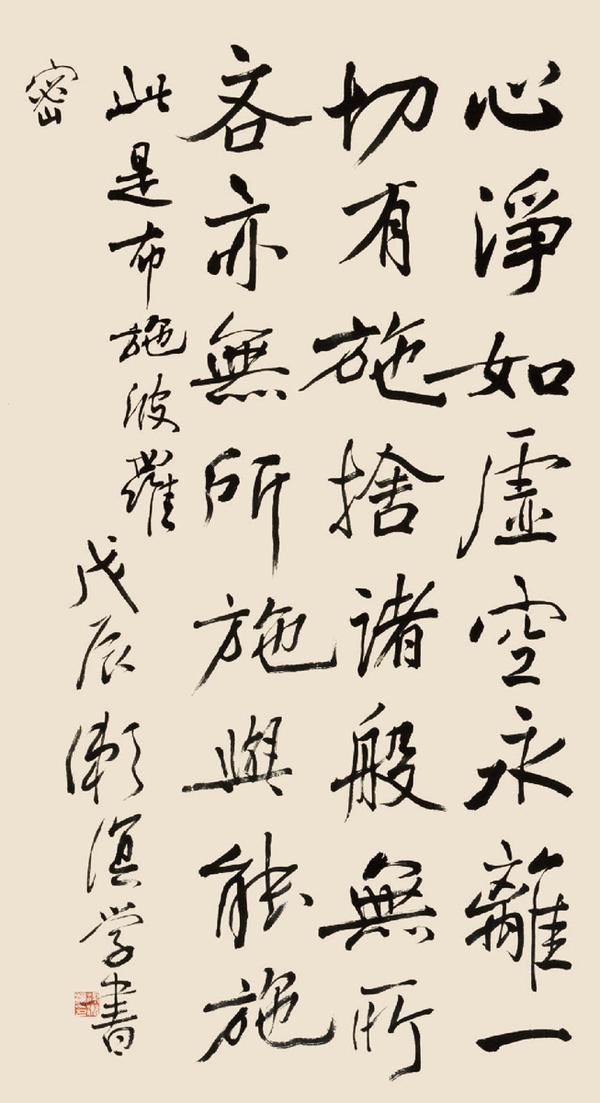 心淨如虛空永離一
切有施捨諸般無所
吝亦無所施與能施
此是布施波羅
密
戊辰学書